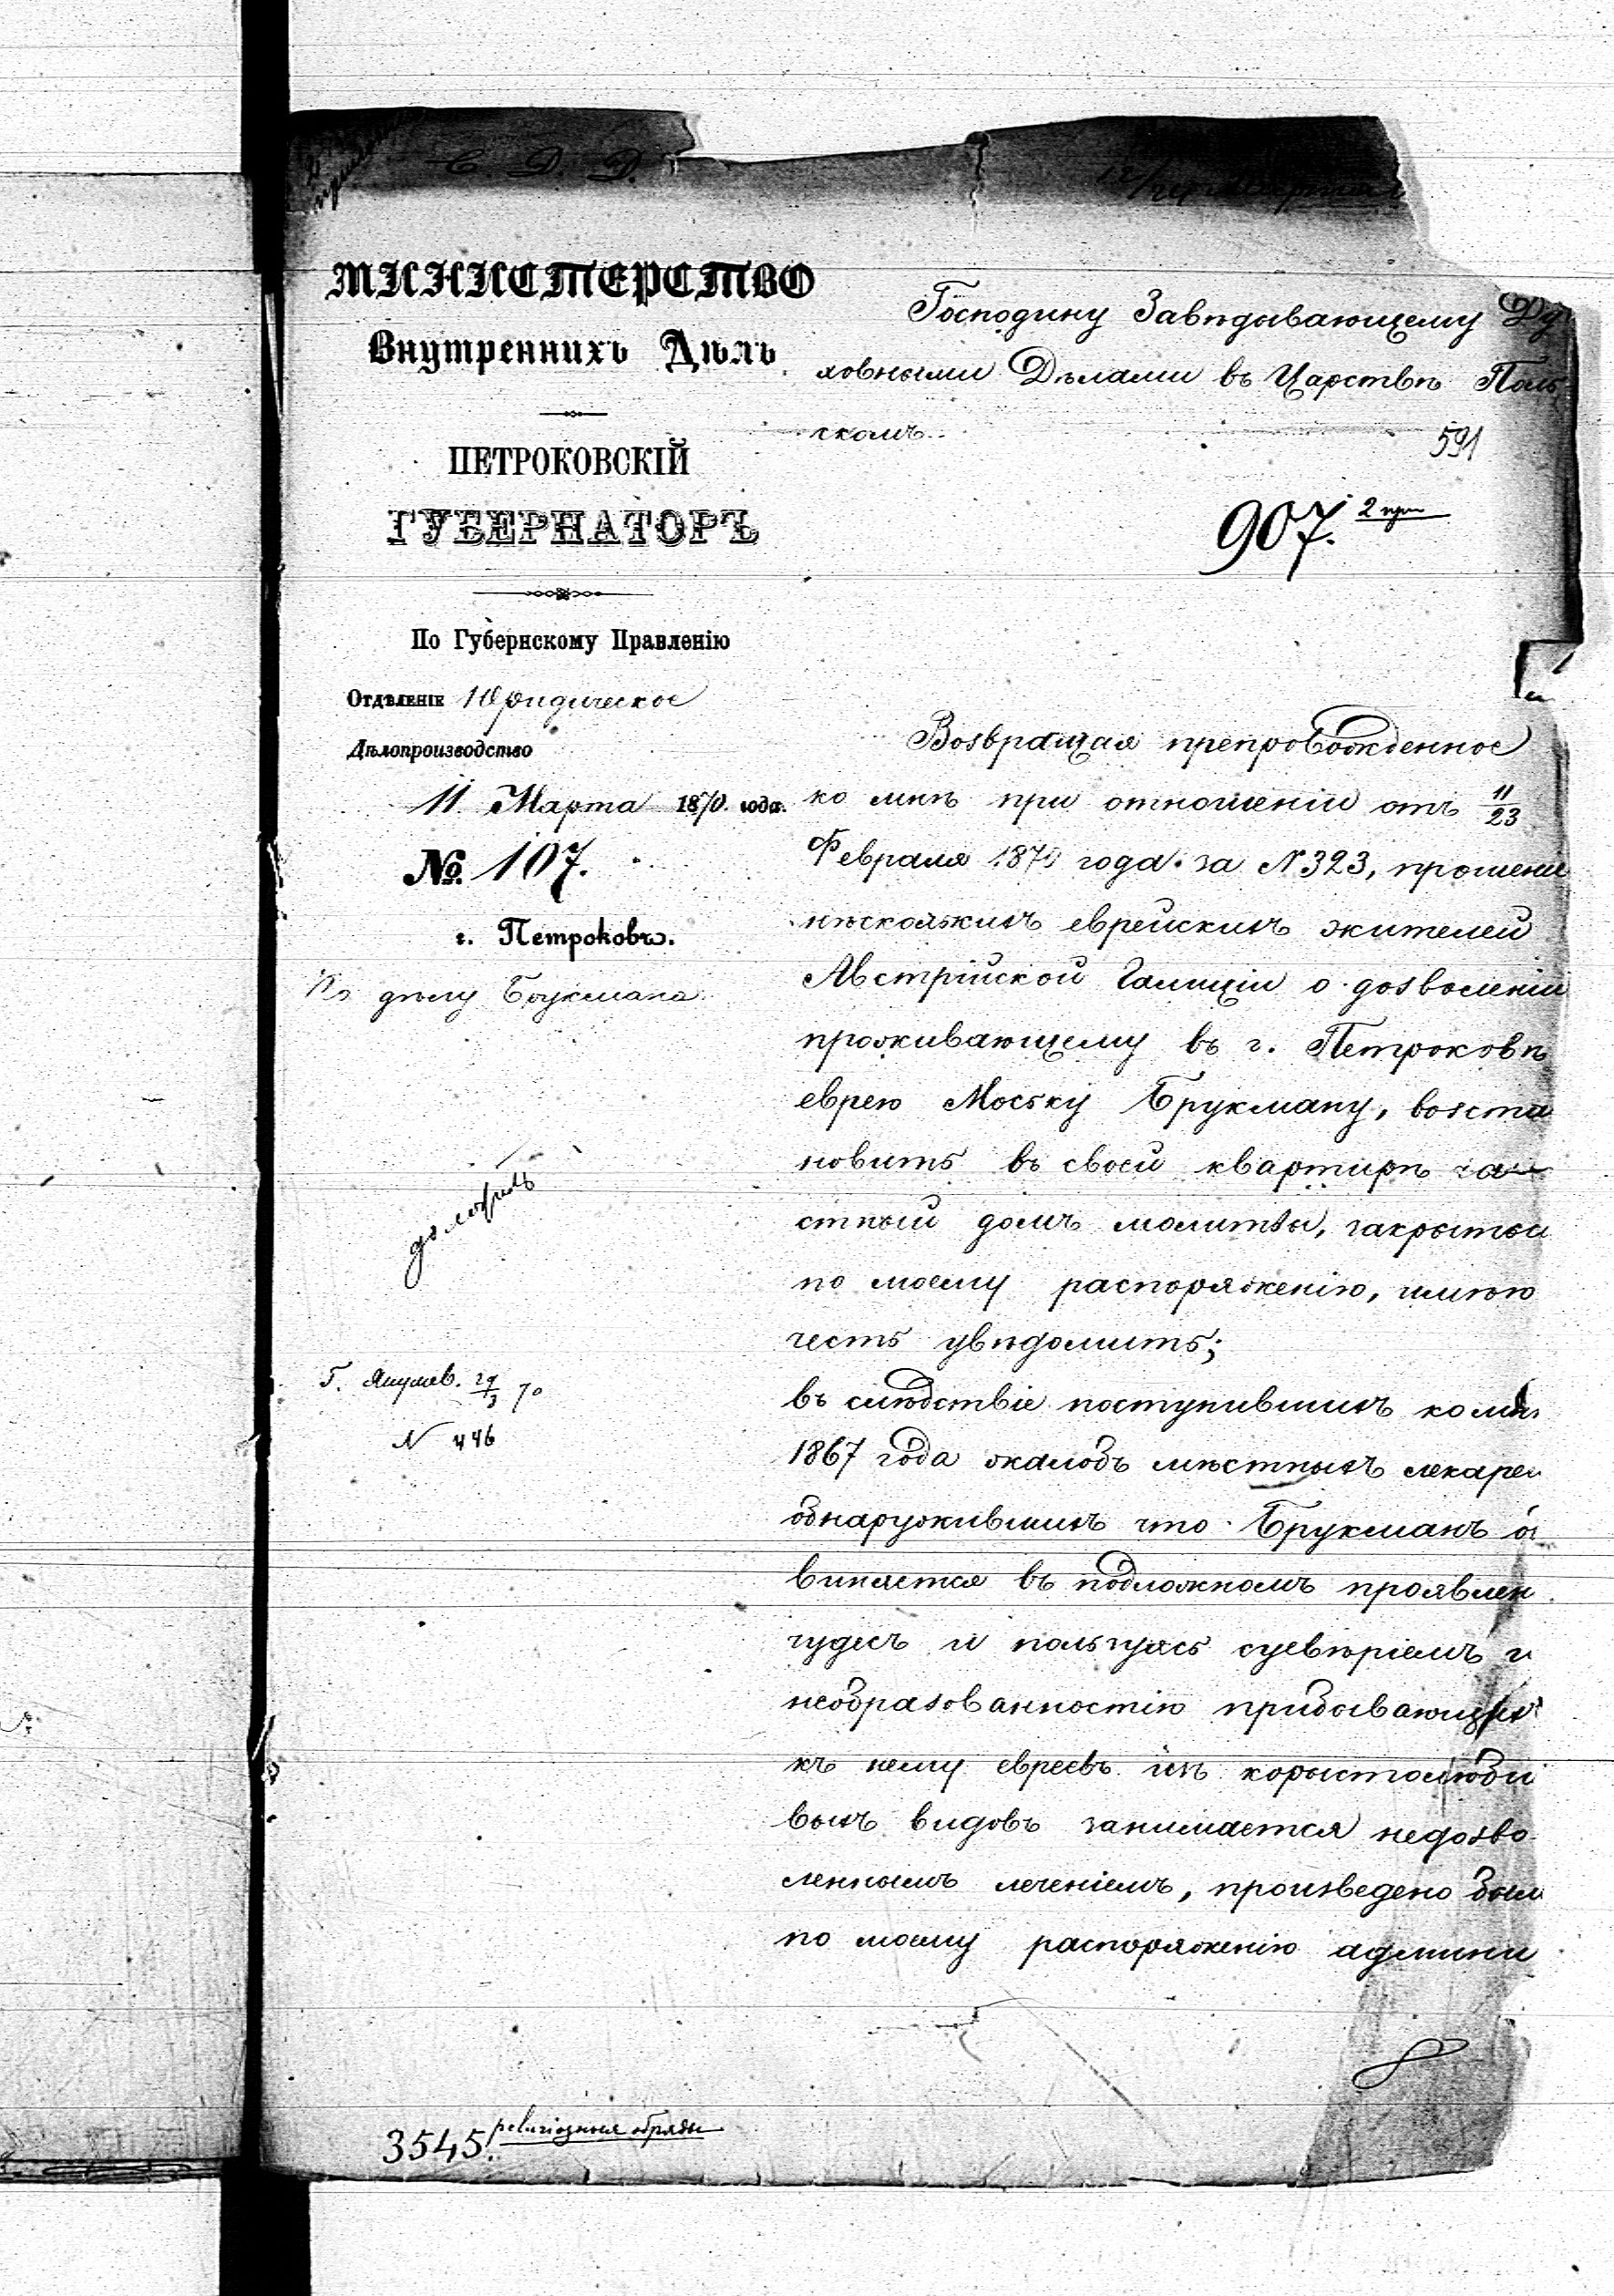 С. Д. Д.
МИНИСТЕРСТВО
Внутреннихъ Дѣлъ.
ПЕТРОКОВСКІЙ
ГУБЕРНАТОРЪ
По Губернскому Правленію
Отдѣленіе Юридическое
Дѣлопроизводство
11 Марта 1870 года.
№ 107.
г. Петроковъ.
По дѣлу Брукмана
N 446
Господину Завѣдывающему Ду
ховными Дѣлами въ Царствѣ Поль
скомъ.
591
907. 2 при
Возвращая препровожденное
ко мнѣ при отношеніи отъ 11/23
Февраля 1870 года за N 323, прошеніе
нѣсколькихъ еврейскихъ жителей
Австрійской Галиціи о дозволеніи
проживающему въ г. Петроковѣ
еврею Моську Брукману, возста
новить въ своей квартирѣ ча
стный домъ молитвы, закрытый
по моему распоряженію, имѣю
честь увѣдомить;
въ слѣдствіе поступившихъ ко мнѣ
1867 года жалобъ мѣстныхъ лекарей
обнаружившихъ что Брукманъ об
виняется въ подложномъ проявлен
чудесъ и пользуясь суевѣріемъ и
необразованностію прибывающихъ
къ нему евреевъ изъ корыстолюби
выхъ видовъ занимается недозво
леннымъ леченіемъ, произведено было
по моему распоряженію админи
3545. религіозные обряды